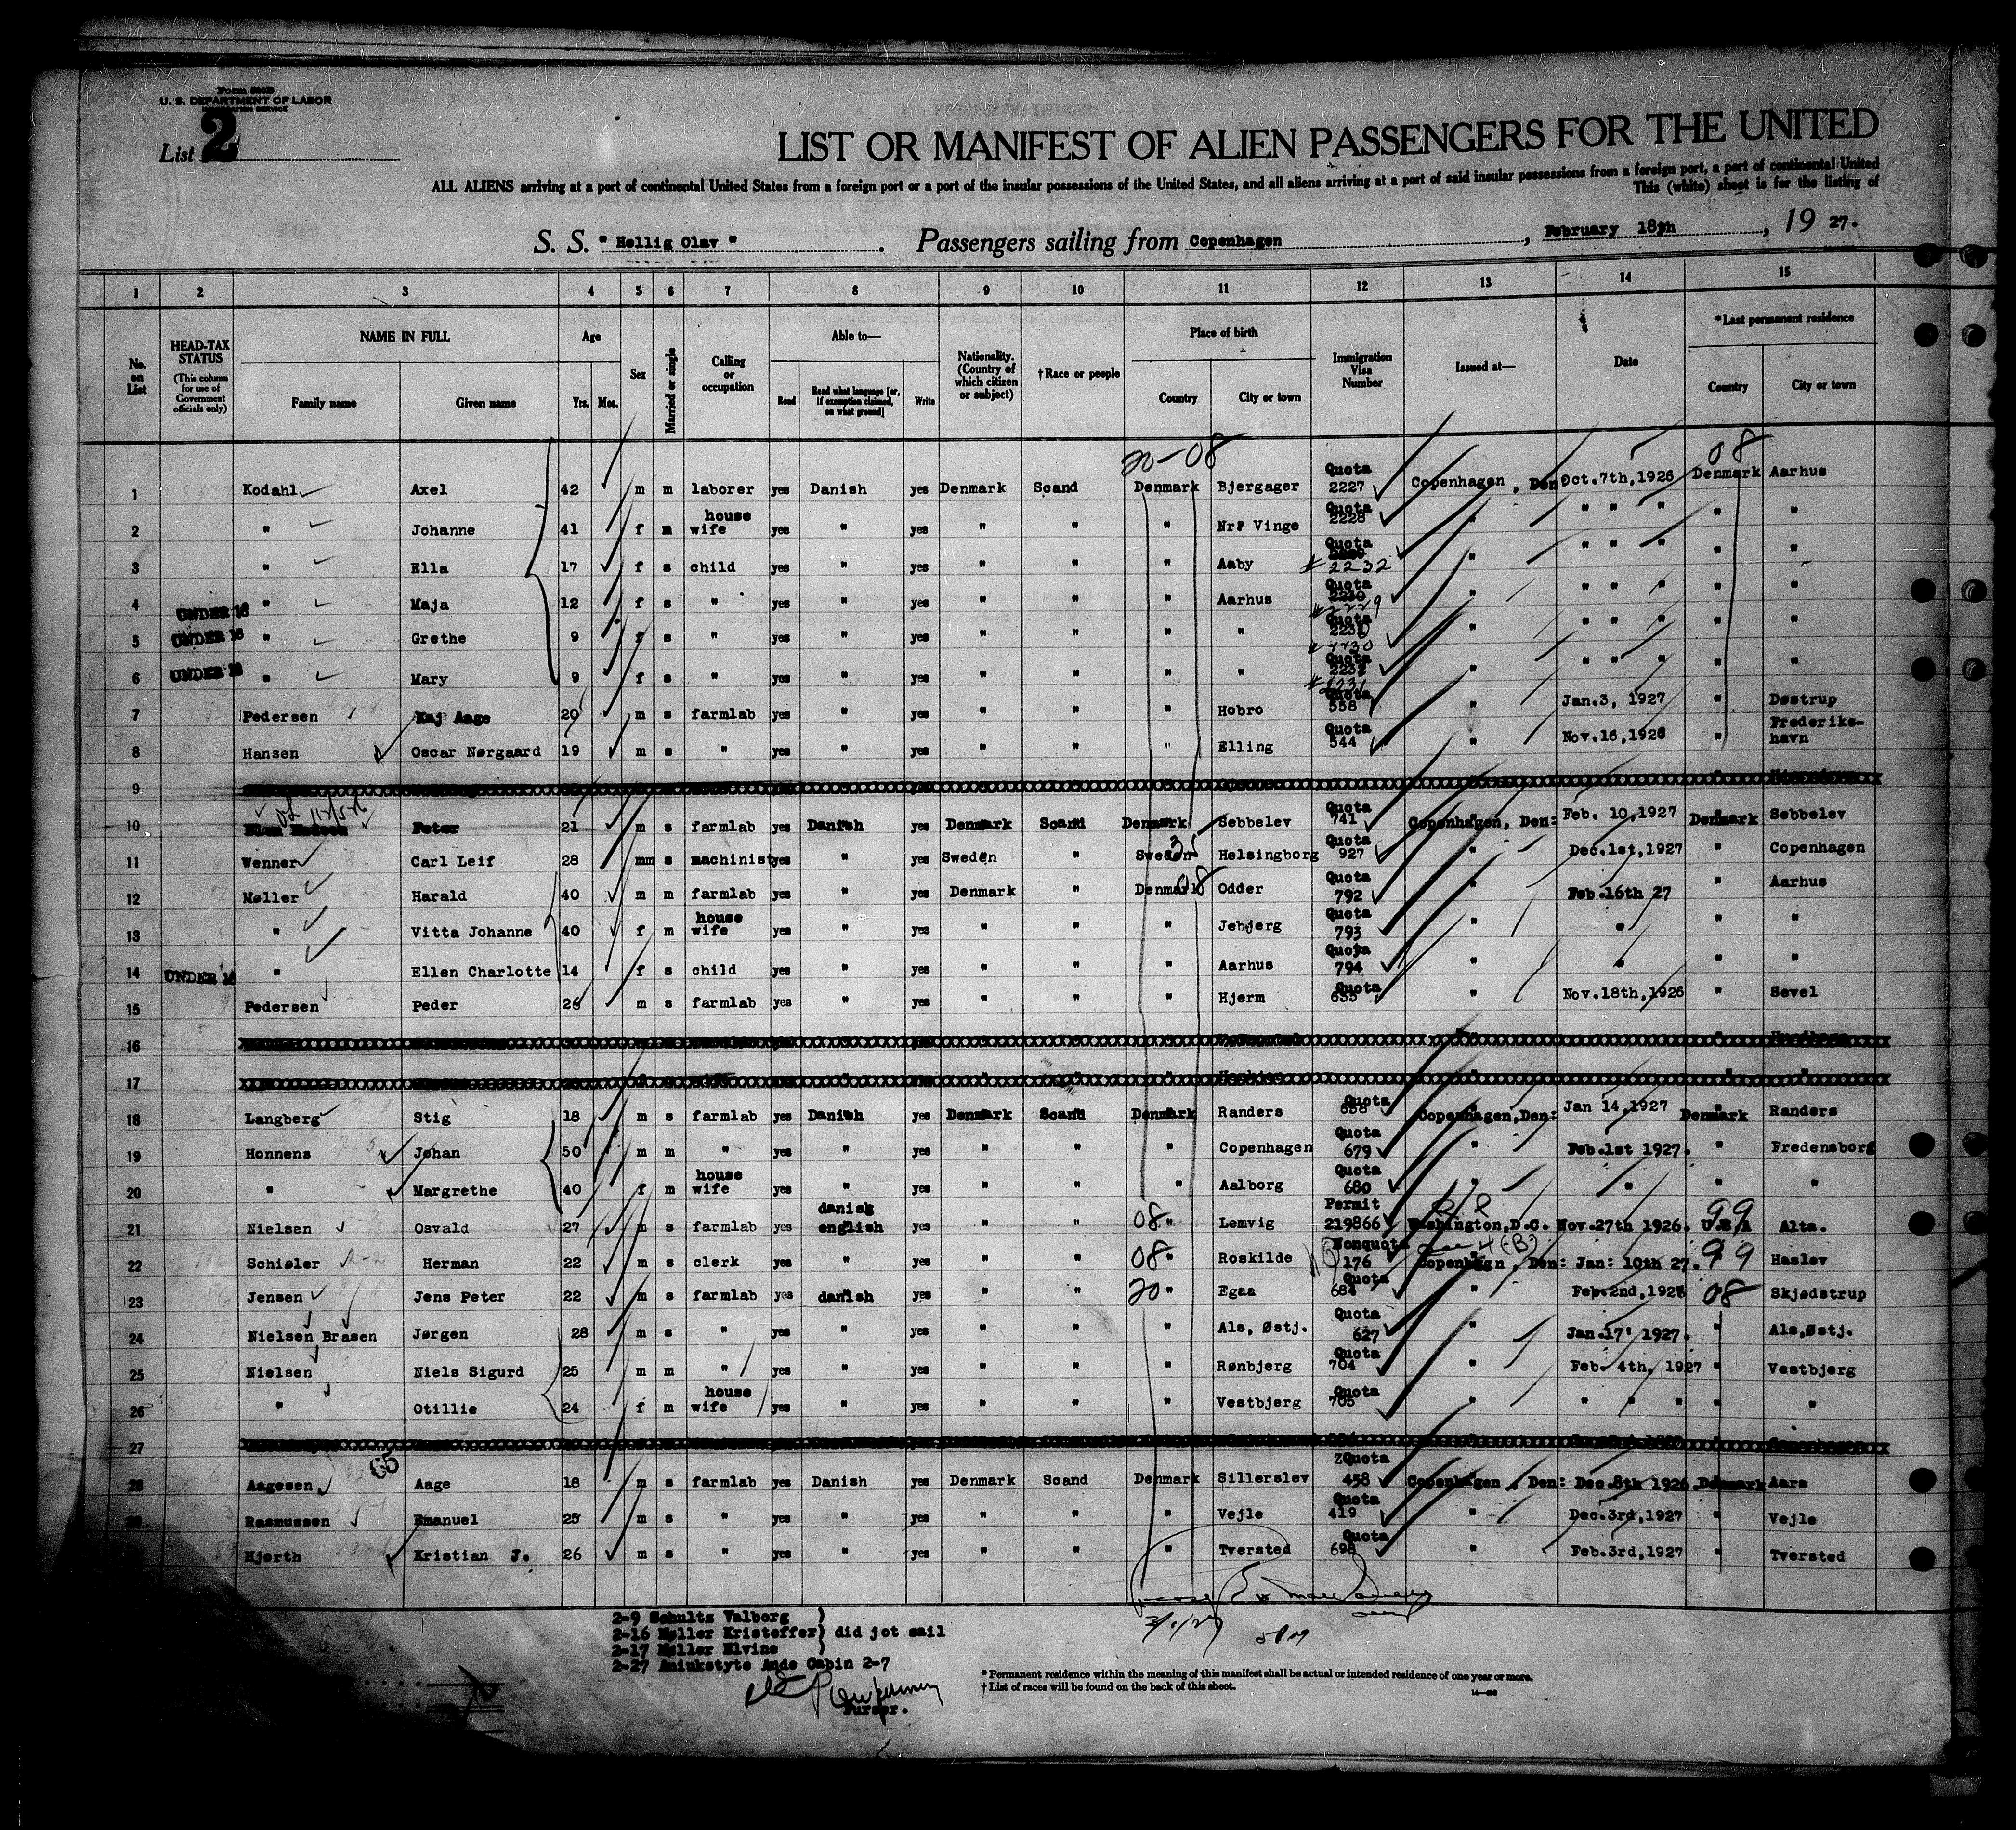 Form 500B
U. S. DEPARTMENT OF LABOR
IMMIGRATION SERVICE
List 2
LIST OR MANIFEST OF ALIEN PASSENGERS FOR THE UNITED
ALL ALIENS arriving at a port of continental United States from a foreign port or a port of the insular possessions of the United States, and all aliens arriving at a port of said insular possessions from a foreign port, a port of continental United
This (white) sheet is for the listing of
S. S. " Hellig Olav " . Passengers sailing from Copenhagen , February 18th , 19 27.
1 2 3 4 5 6 7 8 9 10 11 12 13 14 15
No. on List
HEAD-TAX STATUS (This column for use of Government officials only)
NAME IN FULL Family name Given name
Age Yrs. Mos.
Sex
Married or single
Calling or occupation
Able to— Read Read what language [or, if exemption claimed, on what ground] Write
Nationality. (Country of which citizen or subject)
†Race or people
Place of birth Country City or town
Immigration Visa Number
Issued at—
Date
*Last permanent residence Country City or town
20-08 08
1 Kodahl Axel 42 m m laborer yes Danish yes Denmark Scand Denmark Bjergager Quota 2227 Copenhagen, Den Oct.7th,1926 Denmark Aarhus
2 " Johanne 41 f m house wife yes " yes " " " Nr: Vinge Quota 2228 " " " " " "
3 " Ella 17 f s child yes " yes " " " Aaby Quota # 2232 " " " " " "
4 UNDER 16 " Maja 12 f s " yes " yes " " " Aarhus Quota 2230 # 2229 " " " " " "
5 UNDER 16 " Grethe 9 f s " yes " yes " " " " Quota 2231 # 2230 " " " " " "
6 UNDER 16 " Mary 9 f s " yes " yes " " " " Quota 2232 # 2231 " " " " " "
7 Pedersen Kaj Aage 20 m s farmlab yes " yes " " " Hobro Quota 558 " Jan.3, 1927 " Døstrup
8 Hansen Oscar Nørgaard 19 m s " yes " yes " " " Elling Quota 544 " Nov.16,1926 " Frederiks-havn
9
10 Peter 21 m s farmlab yes Danish yes Denmark Scand Denmark Sebbelev Quota 741 Copenhagen, Den: Feb. 10,1927 Denmark Sebbelev
11 Wenner Carl Leif 28 mm s machinist yes " yes Sweden " Sweden Helsingborg Quota 927 " Dec.1st,1927 " Copenhagen
12 Møller Harald 40 m m farmlab yes " yes Denmark " Denmark 08 Odder Quota 792 " Feb.16th 27 " Aarhus
13 " Vitta Johanne 40 f m house wife yes " yes " " " Jebjerg Quota 793 " " " "
14 UNDER 16 " Ellen Charlotte 14 f s child yes " yes " " " Aarhus Quota 794 " " " "
15 Pedersen Peder 26 m s farmlab yes " yes " " " Hjerm Quota 635 " Nov.18th,1926 " Sevel
16
17
18 Langberg Stig 18 m s farmlab yes Danish yes Denmark Scand Denmark Randers Quota 658 Copenhagen,Den: Jan 14,1927 Denmark Randers
19 Honnens Johan 50 m m " yes " yes " " " Copenhagen Quota 679 " Feb.1st 1927. " Fredensborg
20 " Margrethe 40 f m house wife yes " yes " " " Aalborg Quota 680 " " " "
21 Nielsen Osvald 27 m s farmlab yes danish english yes " " 08 " Lemvig Permit 219866 Washington,D.C. Nov.27th 1926. 99 U.S.A Alta.
22 Schisler Herman 22 m s clerk yes " yes " " 08 " Roskilde Nonquota 176 4 (B) Copenhagen, Den: Jan: 10th 27. 99 Haslev
23 Jensen Jens Peter 22 m s farmlab yes danish yes " " 20 " Egaa Quota 684 " Feb.2nd,1927 08 Skjødstrup
24 Nielsen Brasen Jørgen 28 m s " yes " yes " " " Als, Østj. Quota 627 " Jan.17' 1927. " Als,Østj.
25 Nielsen Niels Sigurd 25 m m " yes " yes " " " Rønbjerg Quota 704 " Feb. 4th, 1927 " Vestbjerg
26 " Otillie 24 f m house wife yes " yes " " " Vestbjerg Quota 705 " " " " " "
27
65
28 Aagesen Aage 18 m s farmlab yes Danish yes Denmark Scand Denmark Sillerslev ZQuota 458 Copenhagen, Den: Dec.8th 1926. Denmark Aars
Rasmussen Emanuel 25 m s " yes " yes " " " Vejle Quota 419 " Dec.3rd,1927 " Vejle
Hjorth Kristian J. 26 m s " yes " yes " " " Tversted Quota 698 " Feb.3rd,1927 " Tversted
2-9 Schultz Valborg )
2-16 Møller Kristoffer) did jot sail
2-17 Møller Elvine )
2-27 Aniukstyte Ande Cabin 2-7
Purser.
* Permanent residence within the meaning of this manifest shall be actual or intended residence of one year or more.
† List of races will be found on the back of this sheet.